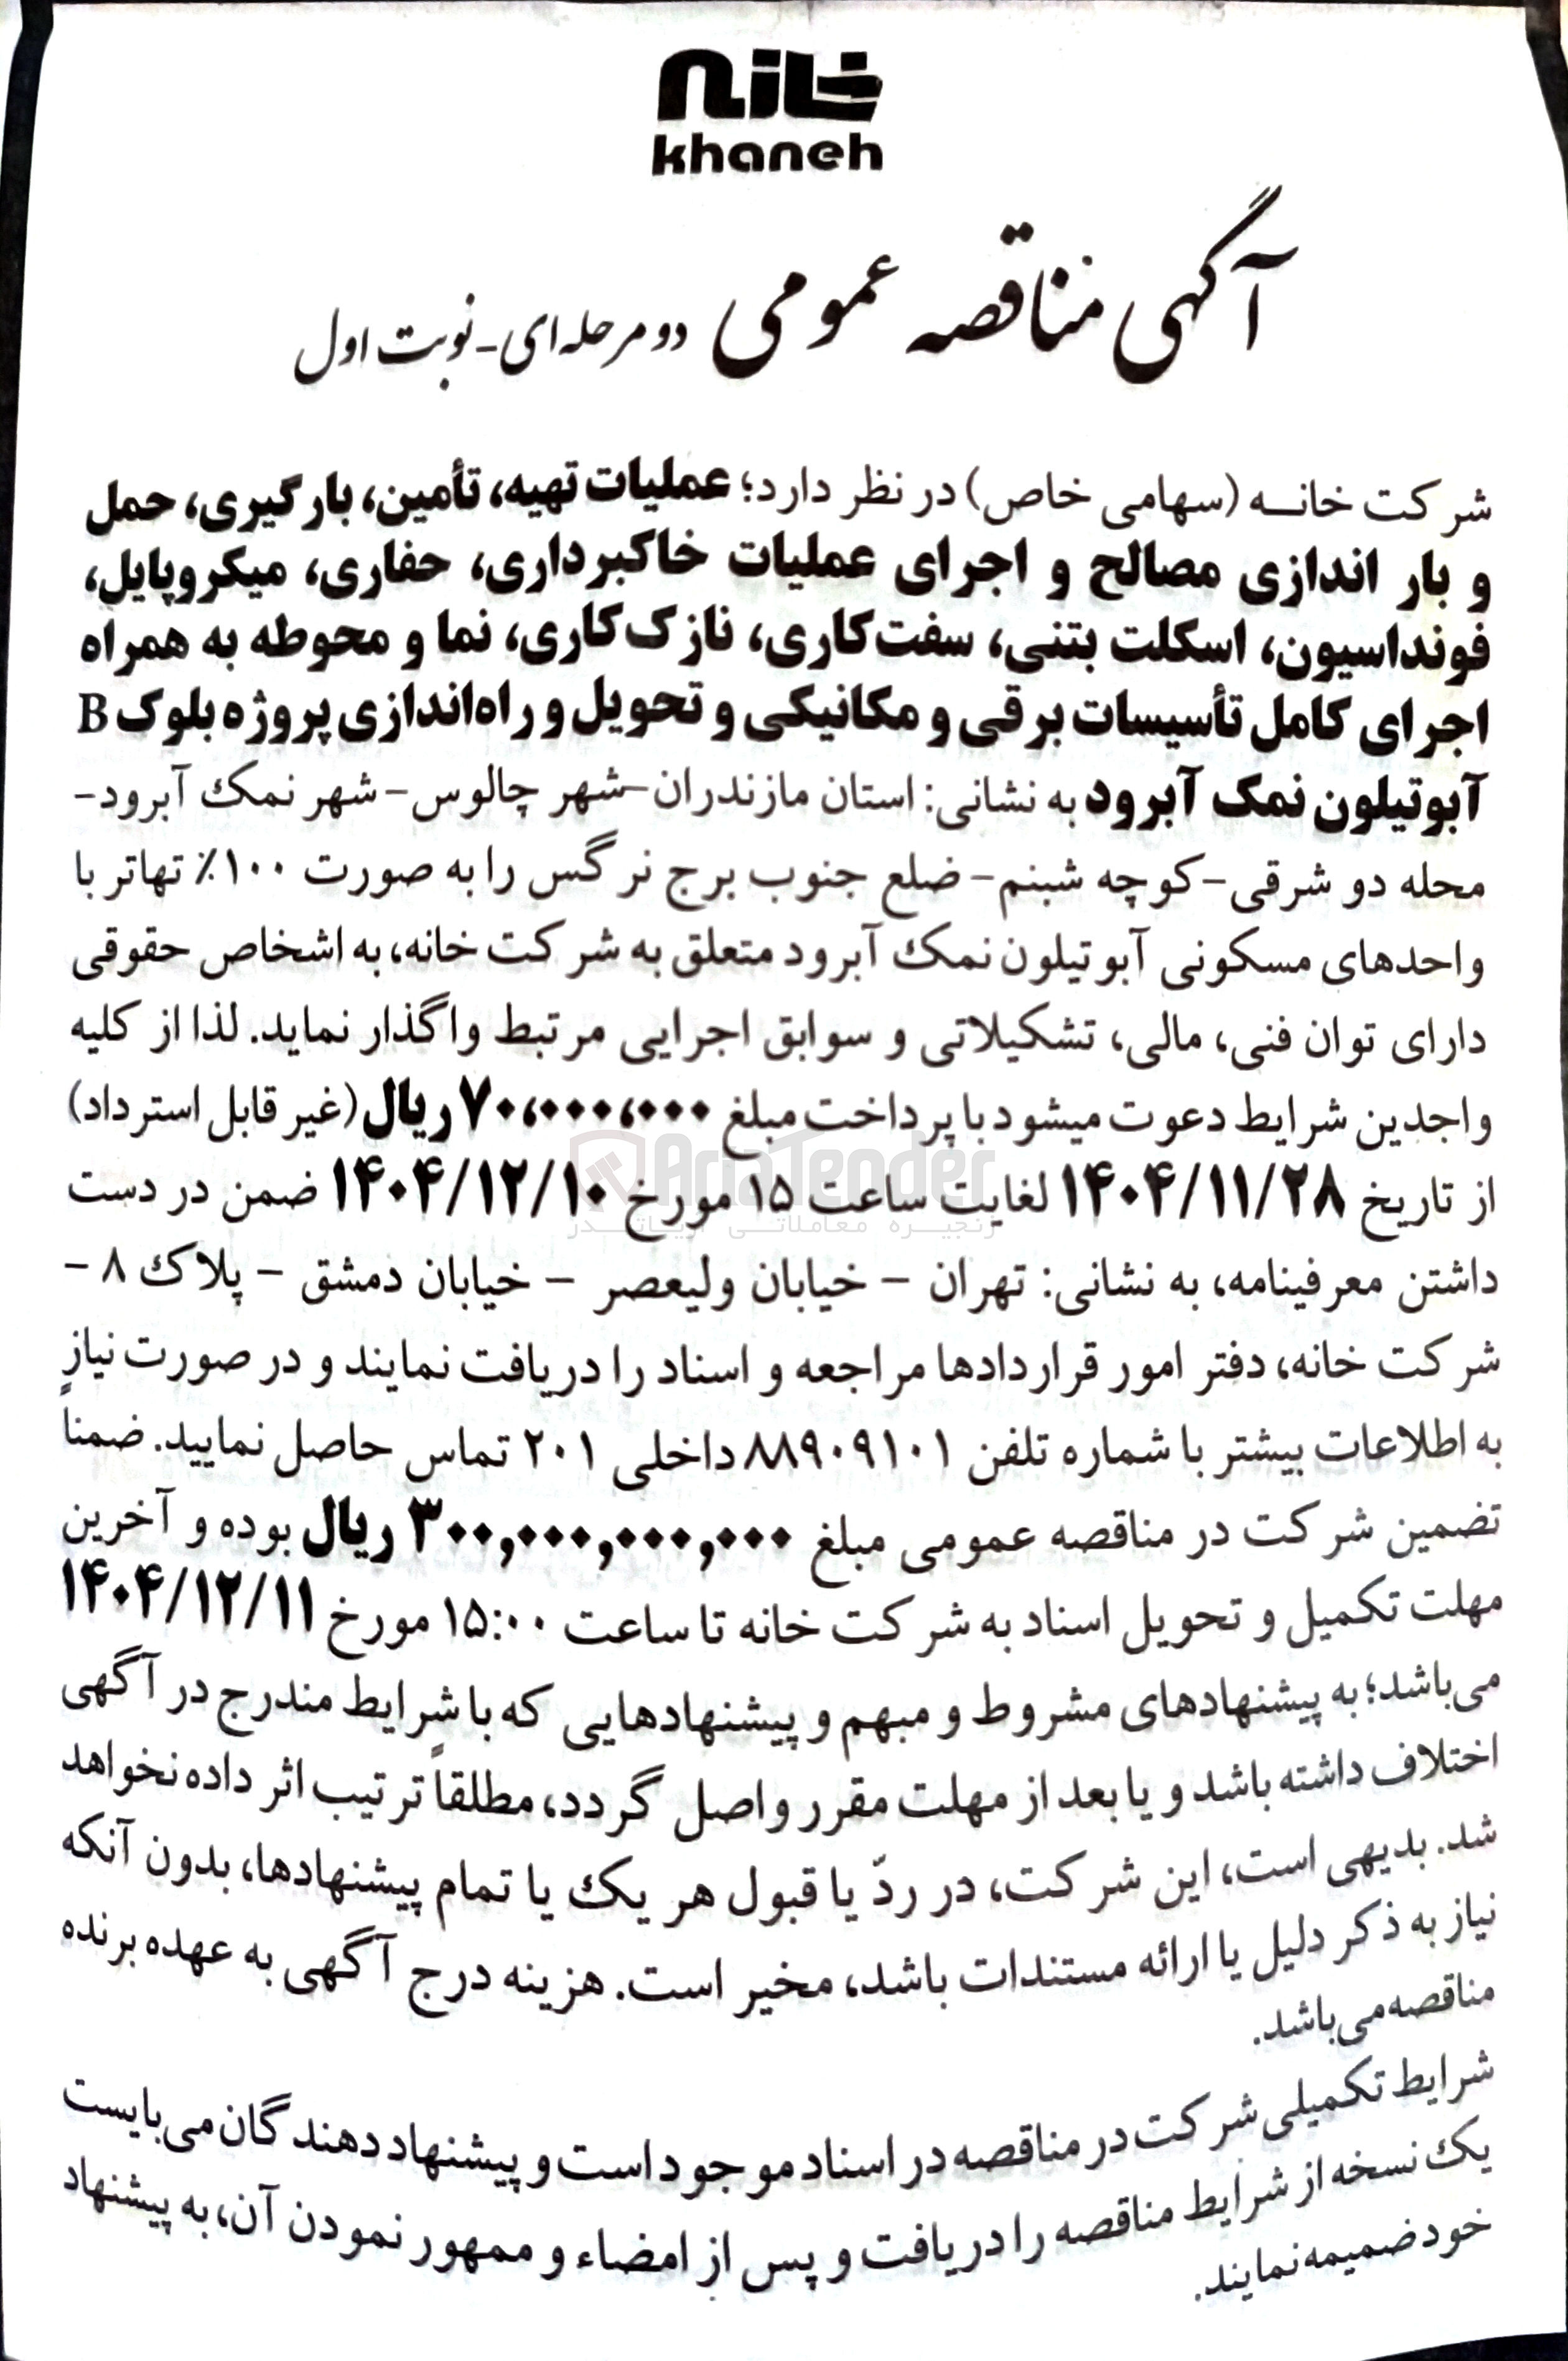 خانه
khaneh
آگهی مناقصه عمومی دو مرحله‌ای-نوبت اول
شرکت خانه (سهامی خاص) در نظر دارد؛ عملیات تهیه، تأمین، بارگیری، حمل
و بار اندازی مصالح و اجرای عملیات خاکبرداری، حفاری، میکروپایل،
فونداسیون، اسکلت بتنی، سفت‌کاری، نازک‌کاری، نما و محوطه به همراه
اجرای کامل تأسیسات برقی و مکانیکی و تحویل و راه‌اندازی پروژه بلوک B
آبوتیلون نمک آبرود به نشانی: استان مازندران-شهر چالوس-شهر نمک آبرود-
محله دو شرقی-کوچه شبنم-ضلع جنوب برج نرگس را به صورت ۱۰۰٪ تهاتر با
واحدهای مسکونی آبوتیلون نمک آبرود متعلق به شرکت خانه، به اشخاص حقوقی
دارای توان فنی، مالی، تشکیلاتی و سوابق اجرایی مرتبط واگذار نماید. لذا از کلیه
واجدین شرایط دعوت میشود با پرداخت مبلغ ۷۰،۰۰۰،۰۰۰ ریال (غیر قابل استرداد)
از تاریخ ۱۴۰۴/۱۱/۲۸ لغایت ساعت ۱۵ مورخ ۱۴۰۴/۱۲/۱۰ ضمن در دست
AriaTender
زنجیره معاملاتی آریاتندر
داشتن معرفینامه، به نشانی: تهران - خیابان ولیعصر - خیابان دمشق - پلاک ۸ -
شرکت خانه، دفتر امور قراردادها مراجعه و اسناد را دریافت نمایند و در صورت نیاز
به اطلاعات بیشتر با شماره تلفن ۸۸۹۰۹۱۰۱ داخلی ۲۰۱ تماس حاصل نمایید. ضمناً
تضمین شرکت در مناقصه عمومی مبلغ ۳۰۰,۰۰۰,۰۰۰,۰۰۰ ریال بوده و آخرین
مهلت تکمیل و تحویل اسناد به شرکت خانه تا ساعت ۱۵:۰۰ مورخ ۱۴۰۴/۱۲/۱۱
می‌باشد؛ به پیشنهادهای مشروط و مبهم و پیشنهادهایی که با شرایط مندرج در آگهی
اختلاف داشته باشد و یا بعد از مهلت مقرر واصل گردد، مطلقاً ترتیب اثر داده نخواهد
شد. بدیهی است، این شرکت، در ردّ یا قبول هر یک یا تمام پیشنهادها، بدون آنکه
نیاز به ذکر دلیل یا ارائه مستندات باشد، مخیر است. هزینه درج آگهی به عهده برنده
مناقصه می‌باشد.
شرایط تکمیلی شرکت در مناقصه در اسناد موجود است و پیشنهاد دهندگان می‌بایست
یک نسخه از شرایط مناقصه را دریافت و پس از امضاء و ممهور نمودن آن، به پیشنهاد
خود ضمیمه نمایند.